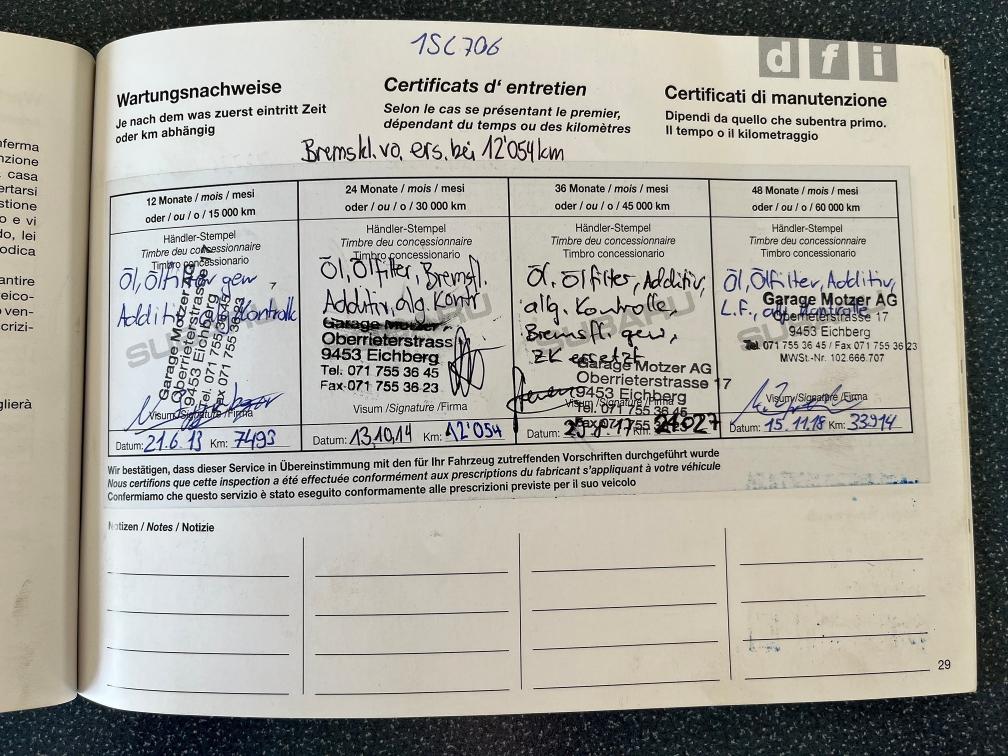 1SC706
dfi
Wartungsnachweise
Je nach dem was zuerst eintritt Zeit
oder km abhängig
Certificats d' entretien
Selon le cas se présentant le premier,
dépendant du temps ou des kilomètres
Certificati di manutenzione
Dipendi da quello che subentra primo.
Il tempo o il kilometraggio
Bremskl. vo. ers. bei 12'054 km
12 Monate / mois / mesi
oder / ou / o / 15 000 km
Händler-Stempel
Timbre deu concessionnaire
Timbro concessionario
Öl, Ölfilter gew
Additiv
Kontrolle
Garage Motzer AG
Oberrieterstrasse
9453 Eichberg
Tel. 071 755 36 45
Fax 071 755 36 23
Visum /Signature /Firma
Datum: 21.6.13 Km: 7493
24 Monate / mois / mesi
oder / ou / o / 30 000 km
Händler-Stempel
Timbre deu concessionnaire
Timbro concessionario
Öl, Ölfilter, Bremsfl.
Additiv, alg. Kontr
Garage Motzer
Oberrieterstrass
9453 Eichberg
Tel. 071 755 36 45
Fax 071 755 36 23
Visum /Signature /Firma
Datum: 13.10.14 Km: 12'054
36 Monate / mois / mesi
oder / ou / o / 45 000 km
Händler-Stempel
Timbre deu concessionnaire
Timbro concessionario
Öl, Ölfilter, Additiv,
alg. Kontrolle,
Bremsfl. gew,
ZK ersetzt
Garage Motzer AG
Oberrieterstrasse 17
9453 Eichberg
Visum /Signature /Firma
Tel. 071 755 36 45
Datum: Km:
48 Monate / mois / mesi
oder / ou / o / 60 000 km
Händler-Stempel
Timbre deu concessionnaire
Timbro concessionario
Öl, Ölfilter, Additiv,
L.F., alg. Kontrolle
Garage Motzer AG
Oberrieterstrasse 17
9453 Eichberg
Tel. 071 755 36 45 / Fax 071 755 36 23
MWSt.-Nr. 102.666.707
Visum /Signature /Firma
Datum: 15.11.18 Km: 33914
SUBARU
SUBARU
SUBARU
Wir bestätigen, dass dieser Service in Übereinstimmung mit den für Ihr Fahrzeug zutreffenden Vorschriften durchgeführt wurde
Nous certifions que cette inspection a été effectuée conformément aux prescriptions du fabricant s'appliquant à votre véhicule
Confermiamo che questo servizio è stato eseguito conformamente alle prescrizioni previste per il suo veicolo
Notizen / Notes / Notizie
29